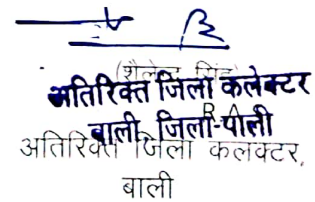 (शैलेन्द्र सिंह)
अतिरिक्त जिला कलेक्टर
बाली, जिला-पाली
अतिरिक्त जिला कलक्टर,
बाली